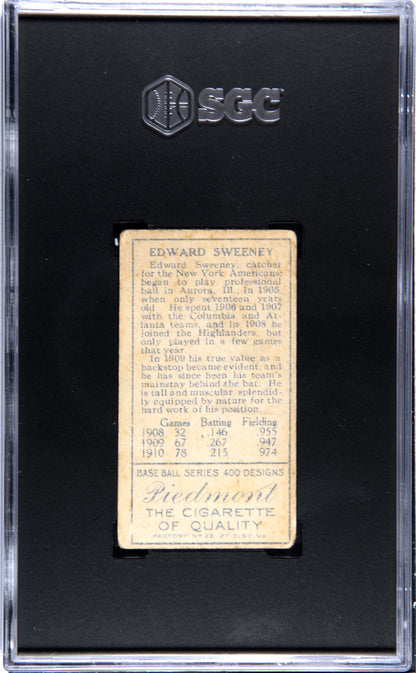 SGC
EDWARD SWEENEY
Edward Sweeney, catcher
for the New York Americans,
began to play professional
ball in Aurora, Ill., in 1905,
when only seventeen years
old. He spent 1906 and 1907
with the Columbia and At-
lanta teams, and in 1908 he
joined the Highlanders, but
only played in a few games
that year.
In 1909 his true value as a
backstop became evident, and
he has since been his team's
mainstay behind the bat. He
is tall and muscular, splendid-
ly equipped by nature for the
hard work of his position.
Games Batting Fielding
1908 32 .146 955
1909 67 267 947
1910 78 215 974
BASE BALL SERIES 400 DESIGNS
Piedmont
THE CIGARETTE
OF QUALITY
FACTORY No 25, 2ND DIST. VA.